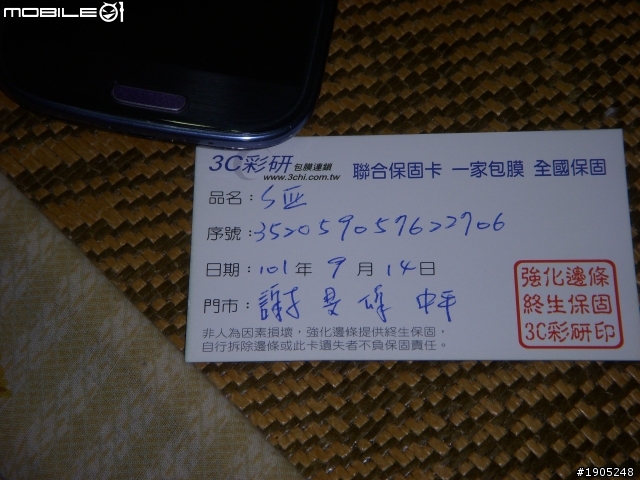 MOBILE01
3C彩研 包膜連鎖
www.3chi.com.tw
聯合保固卡 一家包膜 全國保固
品名：
序號：352059057622706
日期：101年 9 月 14日
門市：謝 中平
非人為因素損壞，強化邊條提供終生保固，
自行拆除邊條或此卡遺失者不負保固責任。
強化邊條
終生保固
3C彩研印
#1905248